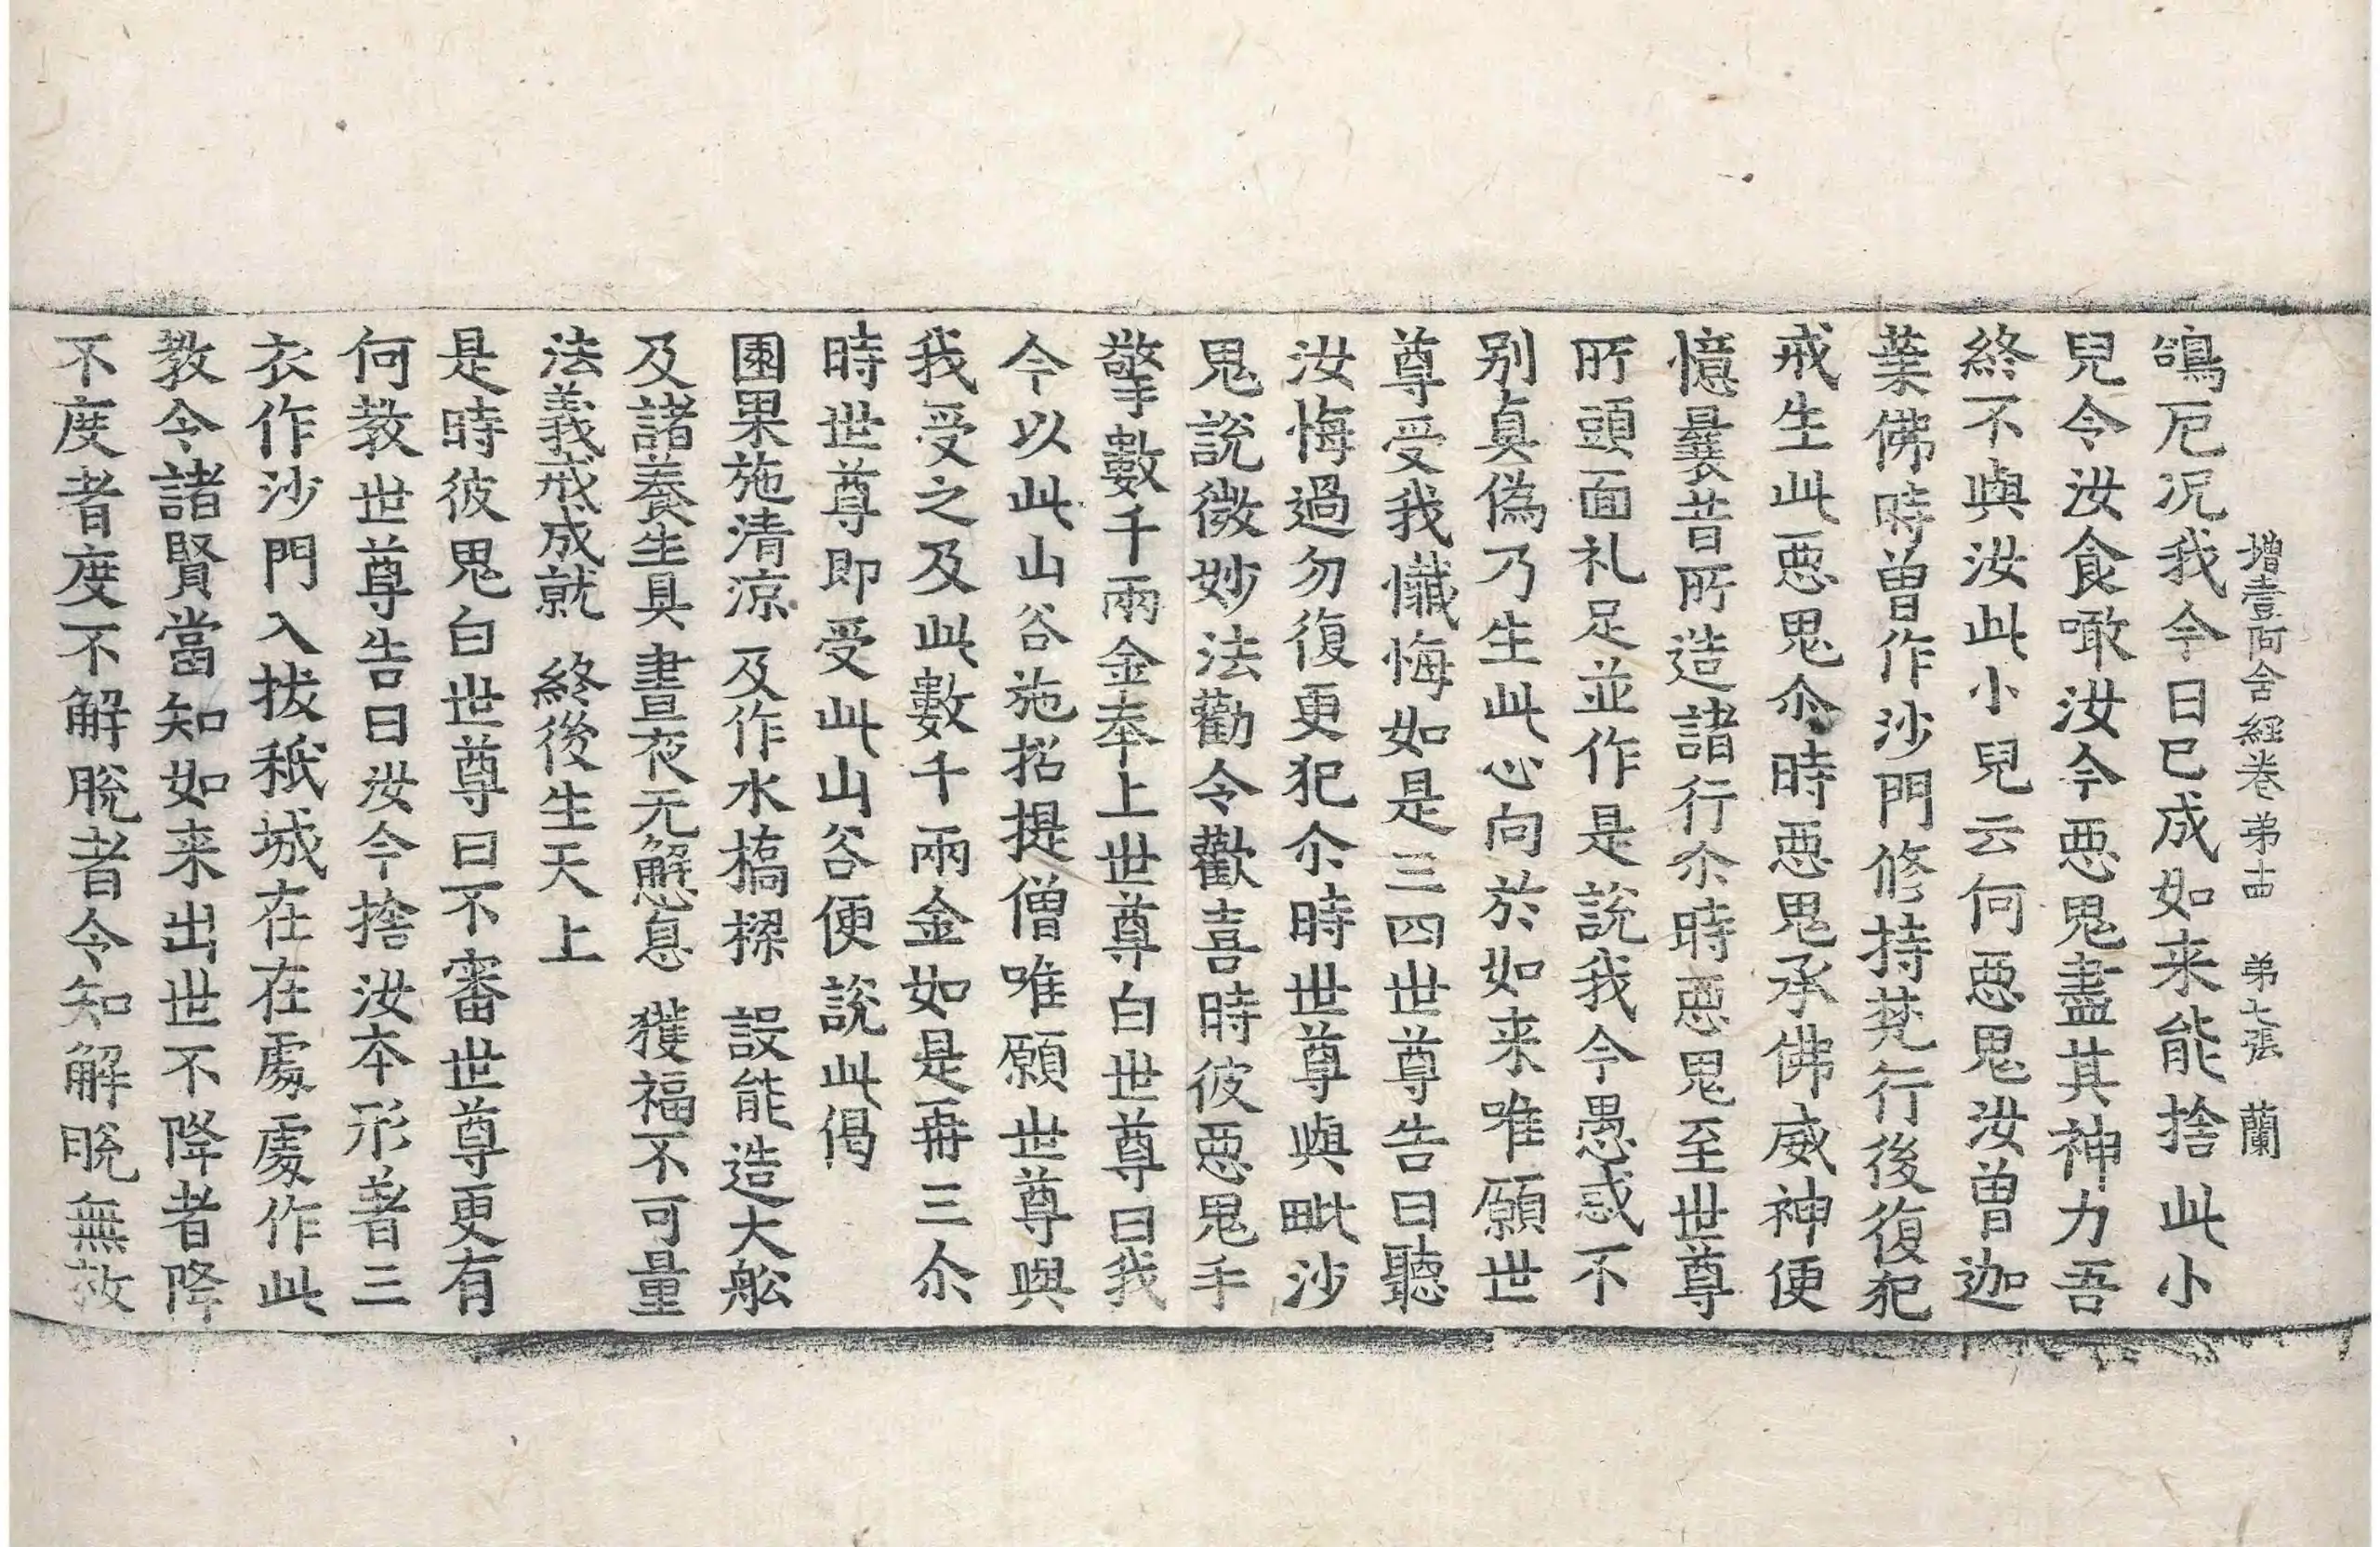 增壹阿含經卷弟十四 弟七張 蘭
鴿厄况我今日已成如来能捨此小
兒令汝食噉汝今惡鬼盡其神力吾
終不與汝此小兒云何惡鬼汝曾迦
葉佛時曾作沙門修持梵行後復犯
戒生此惡鬼尒時惡鬼承佛威神便
憶曩昔所造諸行尒時惡鬼至世尊
所頭面礼足並作是說我今愚惑不
别真偽乃生此心向於如来唯願世
尊受我懺悔如是三四世尊告曰聽
汝悔過勿復更犯尒時世尊與毗沙
鬼說微妙法勸令歡喜時彼惡鬼手
擎數千兩金奉上世尊白世尊曰我
今以此山谷施招提僧唯願世尊與
我受之及此數千兩金如是再三尒
時世尊即受此山谷便說此偈
園果施清涼 及作水橋樑 設能造大舩
及諸養生具 晝夜无懈息 獲福不可量
法義戒成就 終後生天上
是時彼鬼白世尊曰不審世尊更有
何教世尊告曰汝今捨汝本形著三
衣作沙門入拔秖城在在處處作此
教令諸賢當知如来出世不降者降
不度者度不解脫者令知解脫無救